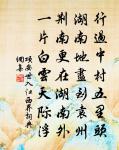 行遍中村五里頭
湖南地盡到袁州
荆南更在湖南外
一片白雲天際浮
項安世入江西界詞悵
倜集